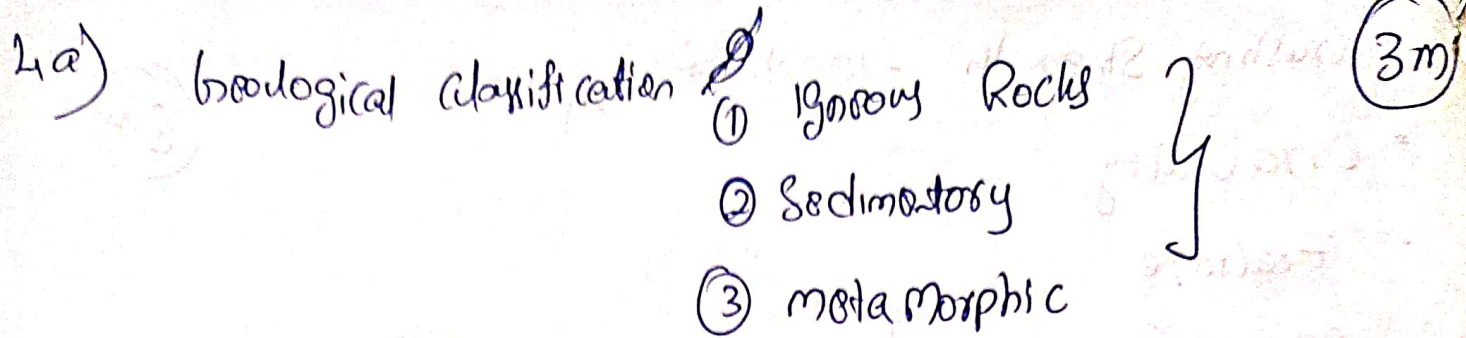 4a) Geological Classification ① Igneous Rocks 3m
② Sedimentory
③ meta morphic